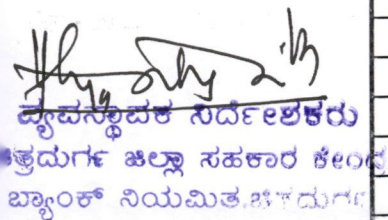 ವ್ಯವಸ್ಥಾಪಕ ನಿರ್ದೇಶಕರು
ತ್ರದುರ್ಗ ಜಿಲ್ಲಾ ಸಹಕಾರ ಕೇಂದ್ರ
ಬ್ಯಾಂಕ್ ನಿಯಮಿತ, ಚಿತ್ರದುರ್ಗ